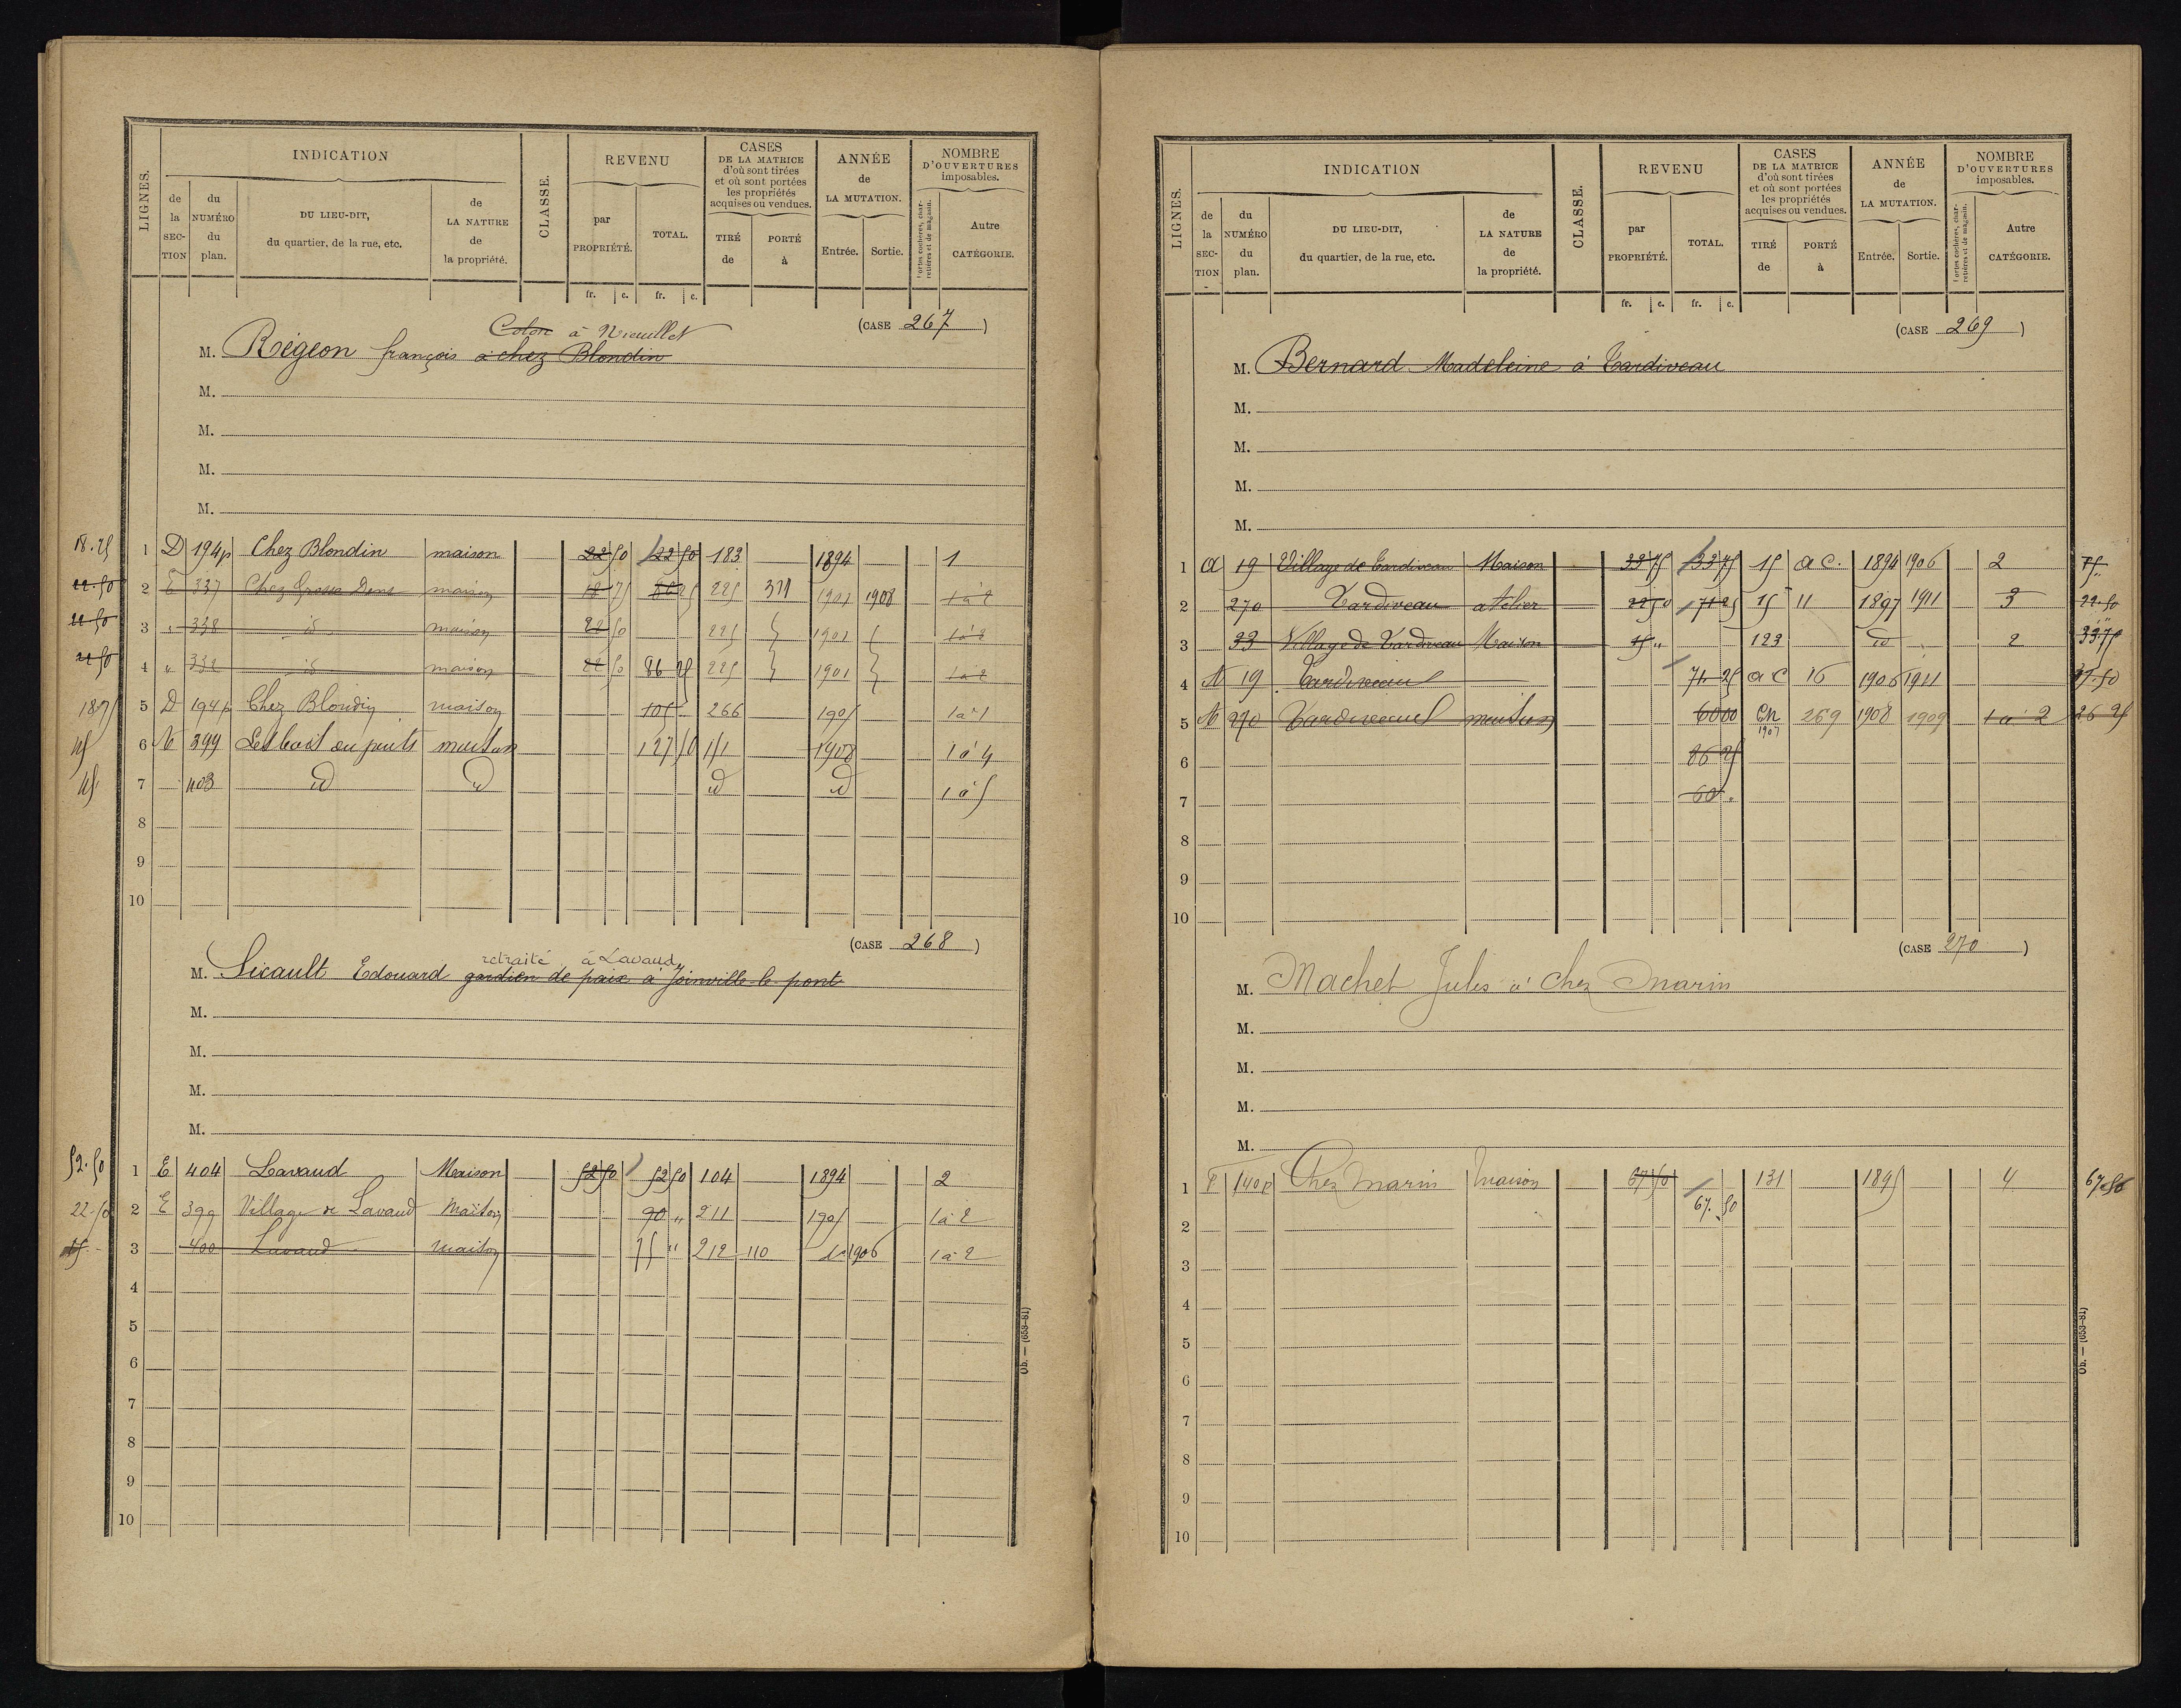 LIGNES.
INDICATION
de la SECTION
du NUMÉRO du plan.
DU LIEU-DIT, du quartier, de la rue, etc.
de LA NATURE de la propriété.
CLASSE.
REVENU
par PROPRIÉTÉ.
TOTAL.
fr. c. fr. c.
CASES DE LA MATRICE d'où sont tirées et où sont portées les propriétés acquises ou vendues.
TIRÉ de
PORTÉ à
ANNÉE de LA MUTATION.
Entrée. Sortie.
NOMBRE D'OUVERTURES imposables.
Portes cochères, charretières et de magasin.
Autre CATÉGORIE.
(CASE 267)
Colon à Vieuillet
M. Régeon françois à chez Blondin
M.
M.
M.
M.
18.75 1 D 194p Chez Blondin maison 22 50 22 50 183 1894 1
22.50 2 E 337 Chez Grosse Dent maison 18 75 86 25 225 311 1901 1908 1 à 2
22 50 3 " 338 id maison 22 50 225 1901 1 à 2
22 50 4 " 332 id maison 22 50 86 25 225 1901 1 à 2
18 75 5 D 194p Chez Blondin maison 105 266 1905 1 à 1
45 6 399 au puits maison 127 50 1908 1 à 4
45 7 403 id id id id 1 à 5
8
9
10
(CASE 268)
retraité à Lavaud
M. Sicault Edouard gardien de paix à Joinville-le-pont
M.
M.
M.
M.
52.50 1 E 404 Lavaud Maison 52 50 52 50 104 1894 2
22.50 2 E 399 Village de Lavaud Maison 90 " 211 1905 1 à 2
15 3 400 Lavaud maison 75 " 212 110 1906 1 à 2
4
5
6
7
8
9
10
Ob. — (653-81)
LIGNES.
INDICATION
de la SECTION
du NUMÉRO du plan.
DU LIEU-DIT, du quartier, de la rue, etc.
de LA NATURE de la propriété.
CLASSE.
REVENU
par PROPRIÉTÉ.
TOTAL.
fr. c. fr. c.
CASES DE LA MATRICE d'où sont tirées et où sont portées les propriétés acquises ou vendues.
TIRÉ de
PORTÉ à
ANNÉE de LA MUTATION.
Entrée. Sortie.
NOMBRE D'OUVERTURES imposables.
Portes cochères, charretières et de magasin.
Autre CATÉGORIE.
(CASE 269)
M. Bernard Madeleine à Tardiveau
M.
M.
M.
M.
1 A 19 Village de Tardiveau Maison 33 75 33 75 15 a c. 1894 1906 2
2 270 Tardiveau atelier 22 50 71 25 15 11 1897 1911 3 22.50
3 33 Village de Tardiveau Maison 15 " 123 id 2 33 75
4 A 19 Tardiveau 71 25 a c 16 1906 1911 37.50
5 A 270 Tardiveau maison 60 00 Cn 1907 269 1908 1909 1 à 2 26 25
6 86 25
7 60
8
9
10
(CASE 270)
M. Machet Jules à chez Marin
M.
M.
M.
M.
1 140p Chez Marin Maison 67 50 67.50 131 1895 4 67.50
2
3
4
5
6
7
8
9
10
Ob. — (653-81)